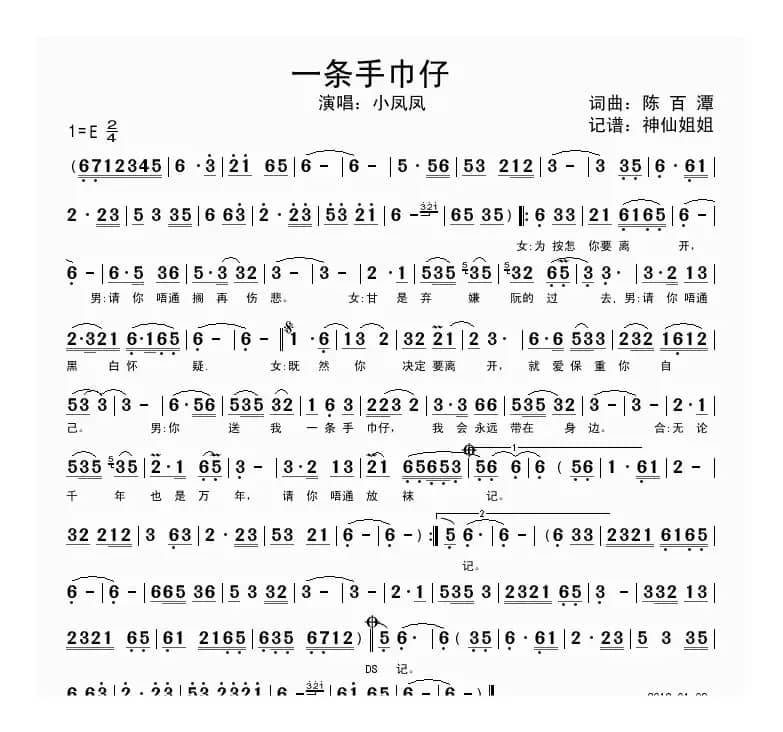 一条手巾仔
演唱：小凤凤
词曲：陈 百 潭
记谱：神仙姐姐
1=E 2/4
(6712345|6·3|21 65|6 -|6 -|5·56|53 212|3 -|3 35|6·61|
2·23|5 3 35|6 63|2·23|53 21|6 - 321|65 35)‖:6 33|21 6165|6 -|
女:为 按怎 你要 离 开，
6 -|6·5 36|5·3 32|3 -|3 -|2·1|535 535|532 65|3 3·|3·2 13|
男:请 你 唔通 搁 再 伤 悲。 女:甘 是 弃 嫌 阮的 过 去，男:请 你 唔通
2·321 6·165|6 -|6 -‖1·6|13 2|32 21|2 3·|6·6 533|232 1612|
黑 白怀 疑． 女:既 然 你 决定 要离 开， 就 爱 保 重 你 自
53 3|3 -|6·56|535 32|1 6 3|223 2|3·3 66|535 532|3 -|3 -|2·1|
己。 男:你 送 我 一 条 手 巾仔， 我 会 永远 带在 身 边。 合:无 论
535 535|2·1 65|3 -|3·2 13|21 65653|56 6|6 ( 56|1·61|2 -|
千 年 也 是 万 年， 请 你 唔通 放 袜 记。
32 212|3 63|2·23|53 21|6 -|6 -):‖5 6·|6 -|(6 33|2321 6165|
记。
6 -|6 -|665 36|5 3 32|3 -|3 -|2·1|535 3|2321 65|3 -|332 13|
2321 65|61 2165|635 6712)‖5 6·|6 ( 35|6·61|2·23|5 3 35|
DS 记。